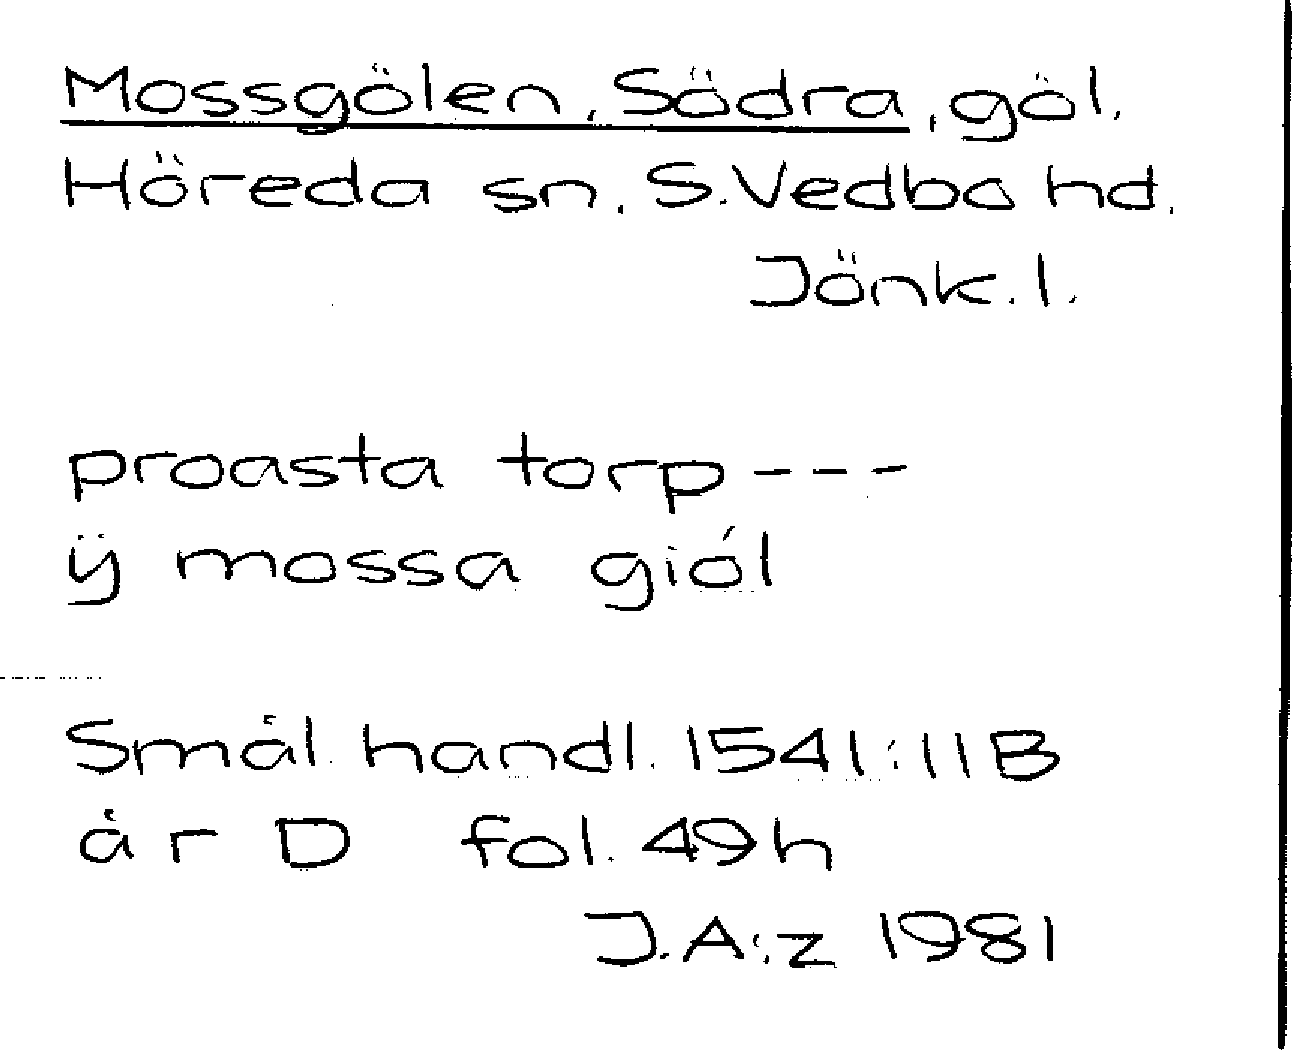 Mossgölen, Södra, göl.
Höreda sn. S.Vedbo hd.
Jönk.l.
proasta torp ---
ÿ mossa giól
Smål. handl. 1541:11B
år D fol. 49h
J.A:z 1981